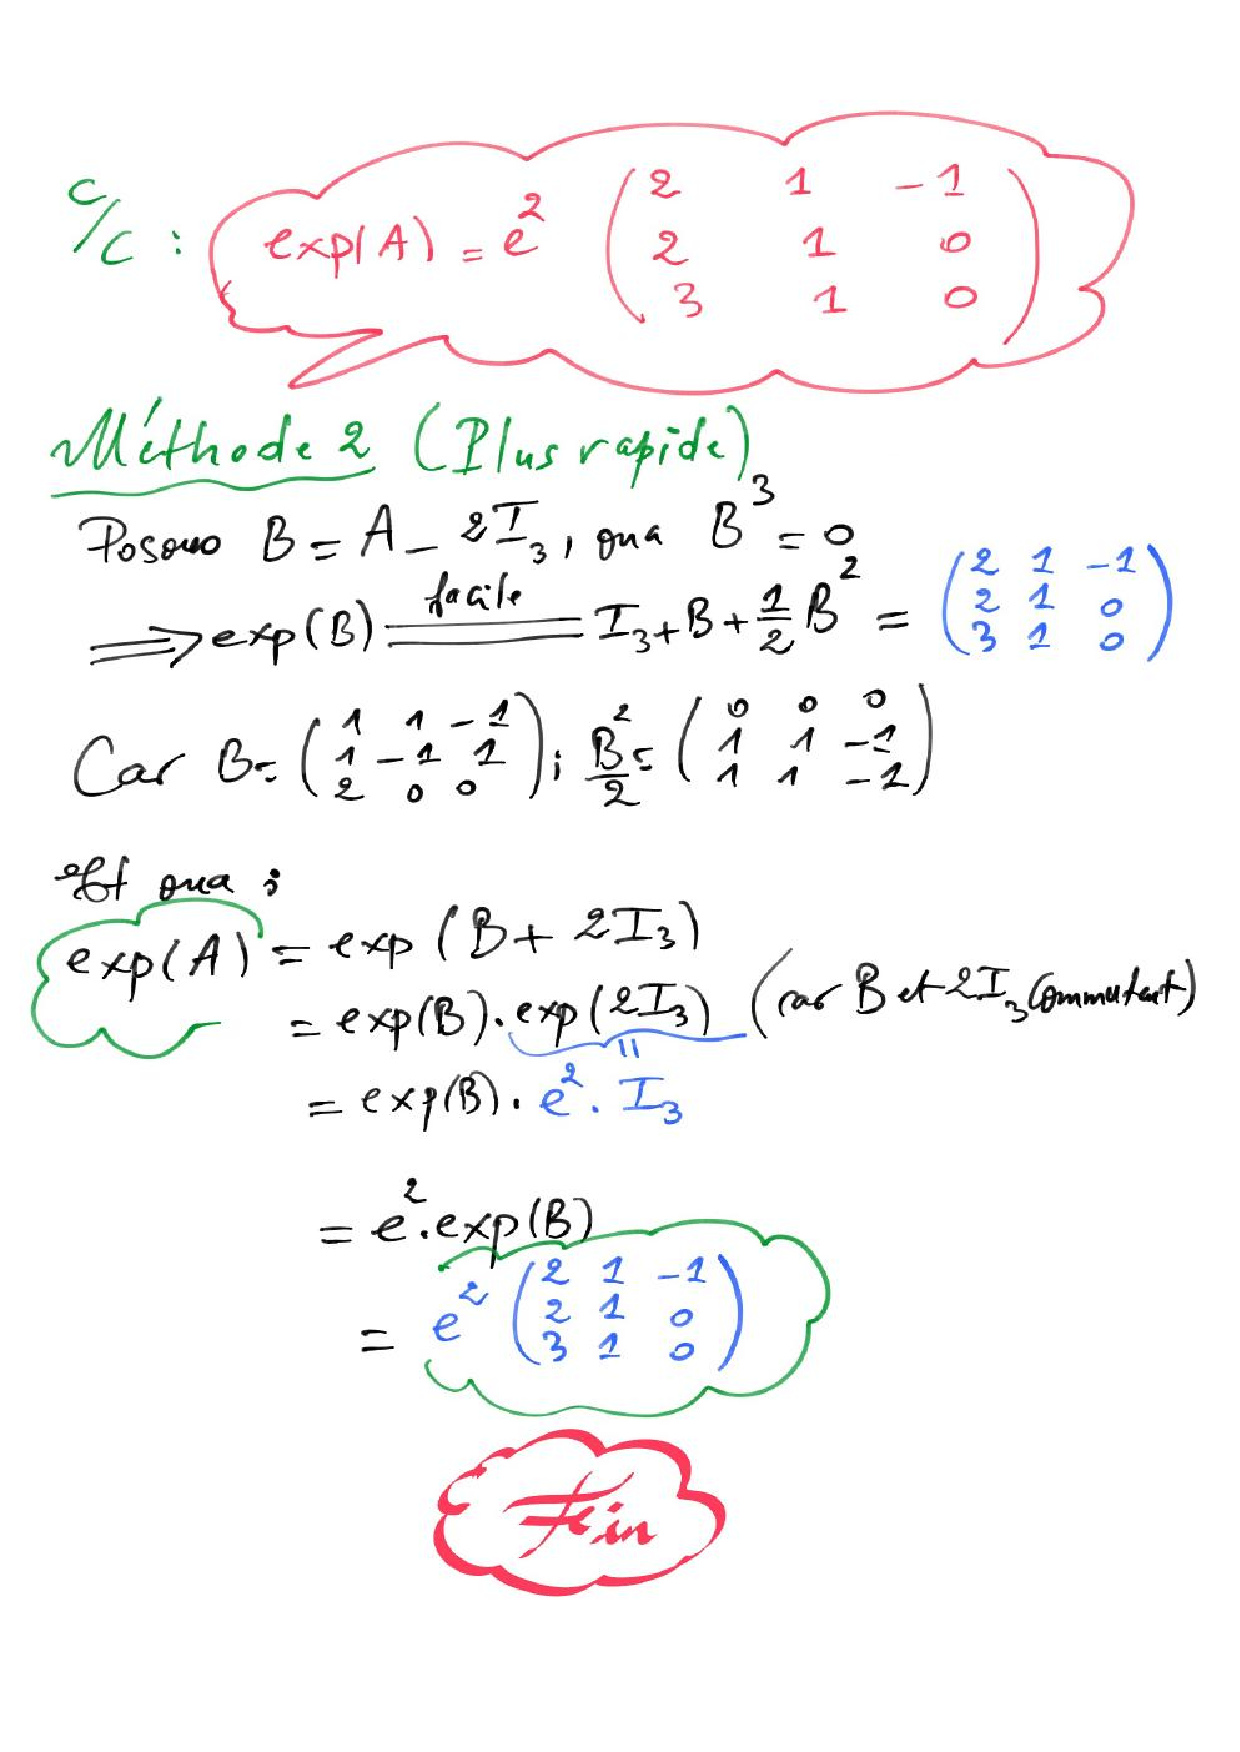 C/C : exp(A) = e² ( 2 1 -1
2 1 0
3 1 0 )
Méthode 2 (Plus rapide)
Posons B = A - 2I₃, on a B³ = 0
⟹ exp(B) =facile= I₃ + B + 1/2 B² = ( 2 1 -1
2 1 0
3 1 0 )
Car B = ( 1 1 -1
1 -1 1
2 0 0 ) ; B²/2 = ( 0 0 0
1 1 -1
1 1 -1 )
Et on a :
exp(A) = exp (B + 2I₃)
= exp(B) . exp(2I₃) (car B et 2I₃ commutent)
= exp(B) . e² . I₃
= e² . exp(B)
= e² ( 2 1 -1
2 1 0
3 1 0 )
Fin